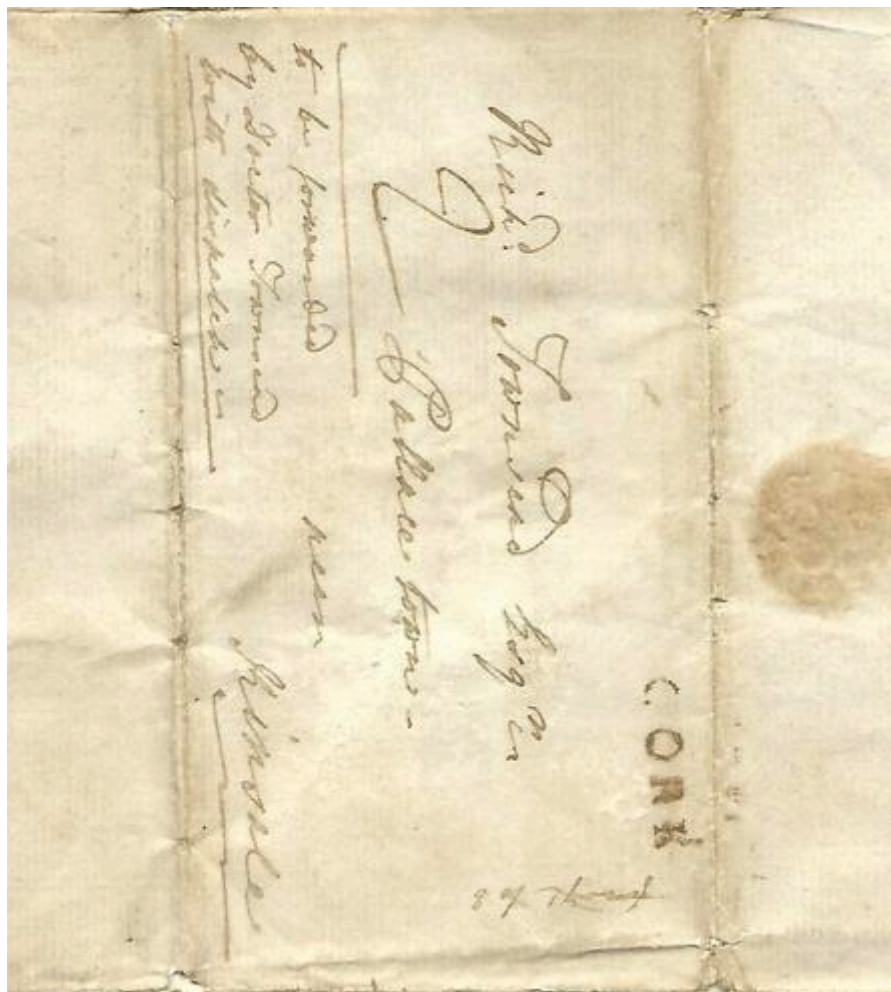 CORK
Rich.d Townsend Esq.r
Pallace town -
near
Kinsale
to be forwarded
by Doctor Townsend
with dispatch